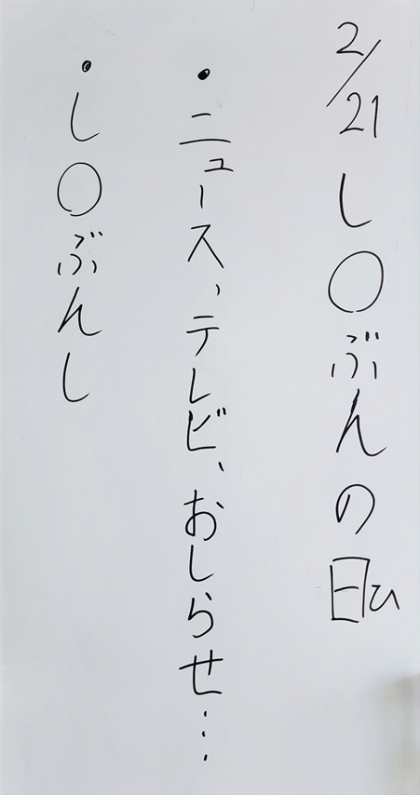 2/21 し〇ぶんの日ひ
・ニュース、テレビ、おしらせ…
・し〇ぶんし